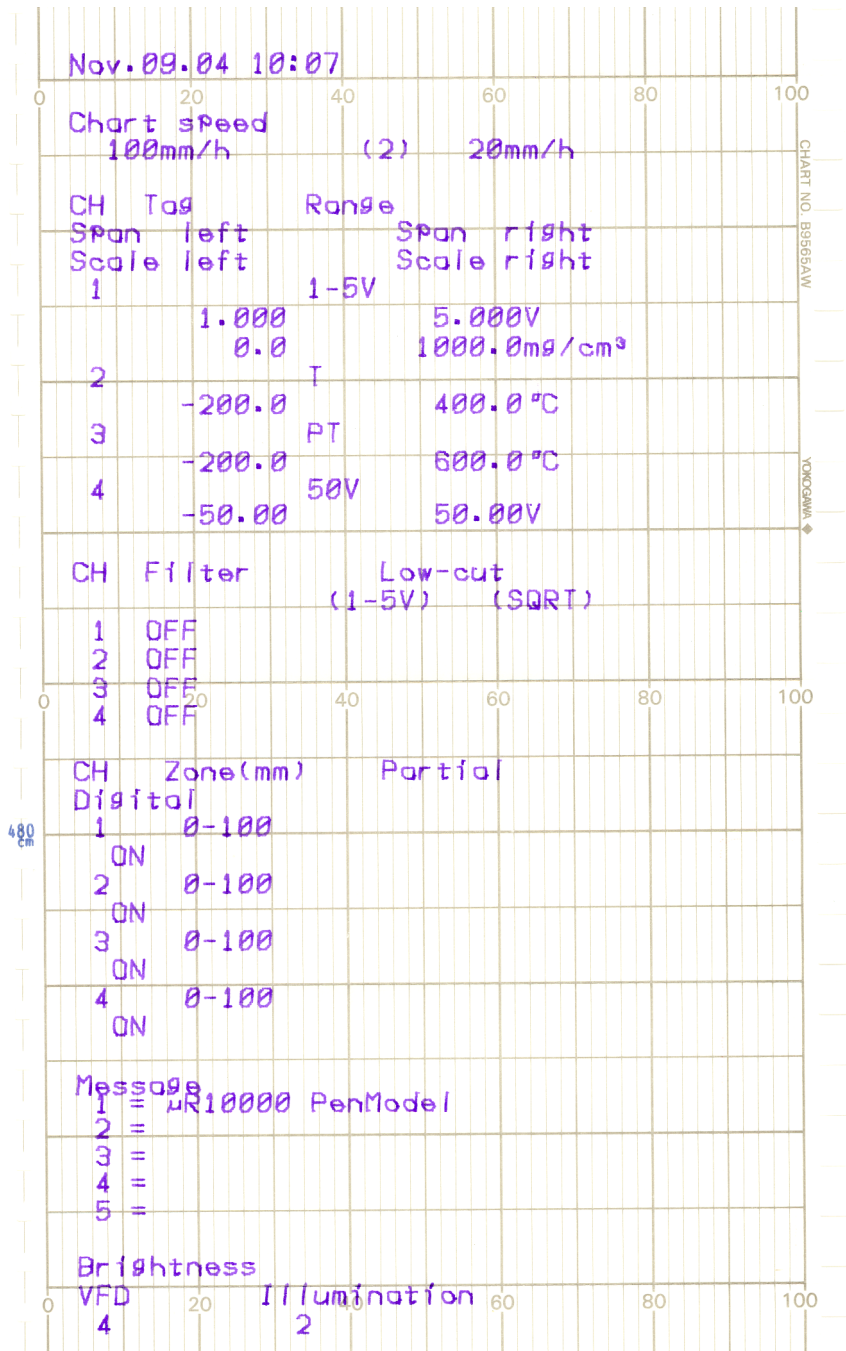 Nov.09.04 10:07
0 20 40 60 80 100
Chart speed
100mm/h (2) 20mm/h
CHART NO. B9565AW
CH Tag Range
Span left Span right
Scale left Scale right
1 1-5V
1.000 5.000V
0.0 1000.0mg/cm³
2 T
-200.0 400.0°C
3 PT
-200.0 600.0°C
YOKOGAWA
4 50V
-50.00 50.00V
CH Filter Low-cut
(1-5V) (SQRT)
1 OFF
2 OFF
3 OFF
0 20 40 60 80 100
4 OFF
CH Zone(mm) Partial
Digital
480 cm
1 0-100
ON
2 0-100
ON
3 0-100
ON
4 0-100
ON
Message
1 = μR10000 PenModel
2 =
3 =
4 =
5 =
Brightness
VFD Illumination
0 20 40 60 80 100
4 2